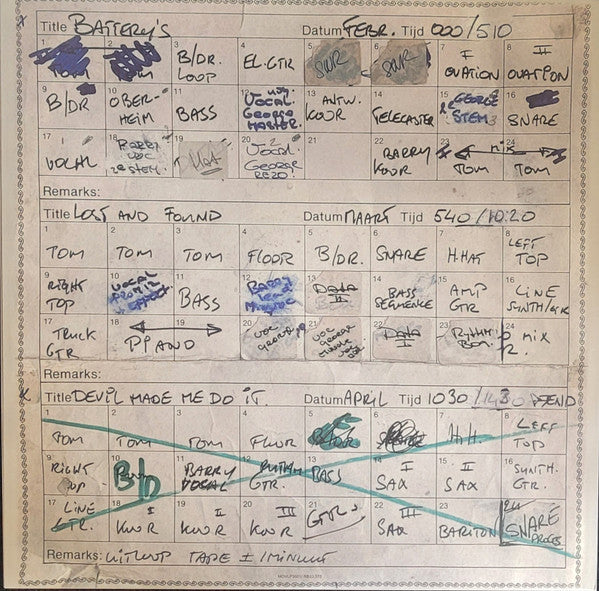 Title BATTERY'S Datum FEBR. Tijd 000/510
1 TOM 2 3 B/DR. LOOP 4 EL.GTR 5 SNR 6 SNR 7 I OVATION 8 II OVATION
9 B/DR 10 OBER-HEIM 11 BASS 12 VOCAL GEORGE MASTER. 13 ANTW. KOOR 14 TELECASTER 15 GEORGE STEM 16 SNARE
17 VOCAL 18 BARRY VOC 2e STEM. 19 20 2 VOCAL GEORGE 21 22 BARRY KOOR 23 TOM mix 24 TOM
Remarks:
Title LOST AND FOUND Datum MAART Tijd 540/10:20
1 TOM 2 TOM 3 TOM 4 FLOOR 5 B/DR. 6 SNARE 7 H.HAT 8 LEFT TOP
9 RIGHT TOP 10 VOCAL 11 BASS 12 BARRY 13 DATA II 14 BASS SEQUENCE 15 AMP GTR 16 LINE SYNTH/GTR
17 TRUCK GTR 18 PIANO 19 20 VOC GEORGE 21 VOC GEORGE 22 DATA I 23 RITHM BOX. 24 mix
Remarks:
Title DEVIL MADE ME DO iT. Datum APRIL Tijd 1030 END
1 TOM 2 TOM 3 TOM 4 FLUOR 5 6 7 H.H. 8 LEFT TOP
9 RIGHT TOP 10 B/D 11 BARRY VOCAL 12 GTR. 13 BASS 14 I SAX 15 II SAX 16 SYNTH. GTR.
17 LINE GTR. 18 I KOOR 19 II KOOR 20 III KOOR 21 GTR. 22 III SAX 23 BARITON 24 SNARE PROCES
Remarks: UITLOOP TAPE ± 1 MINUUT